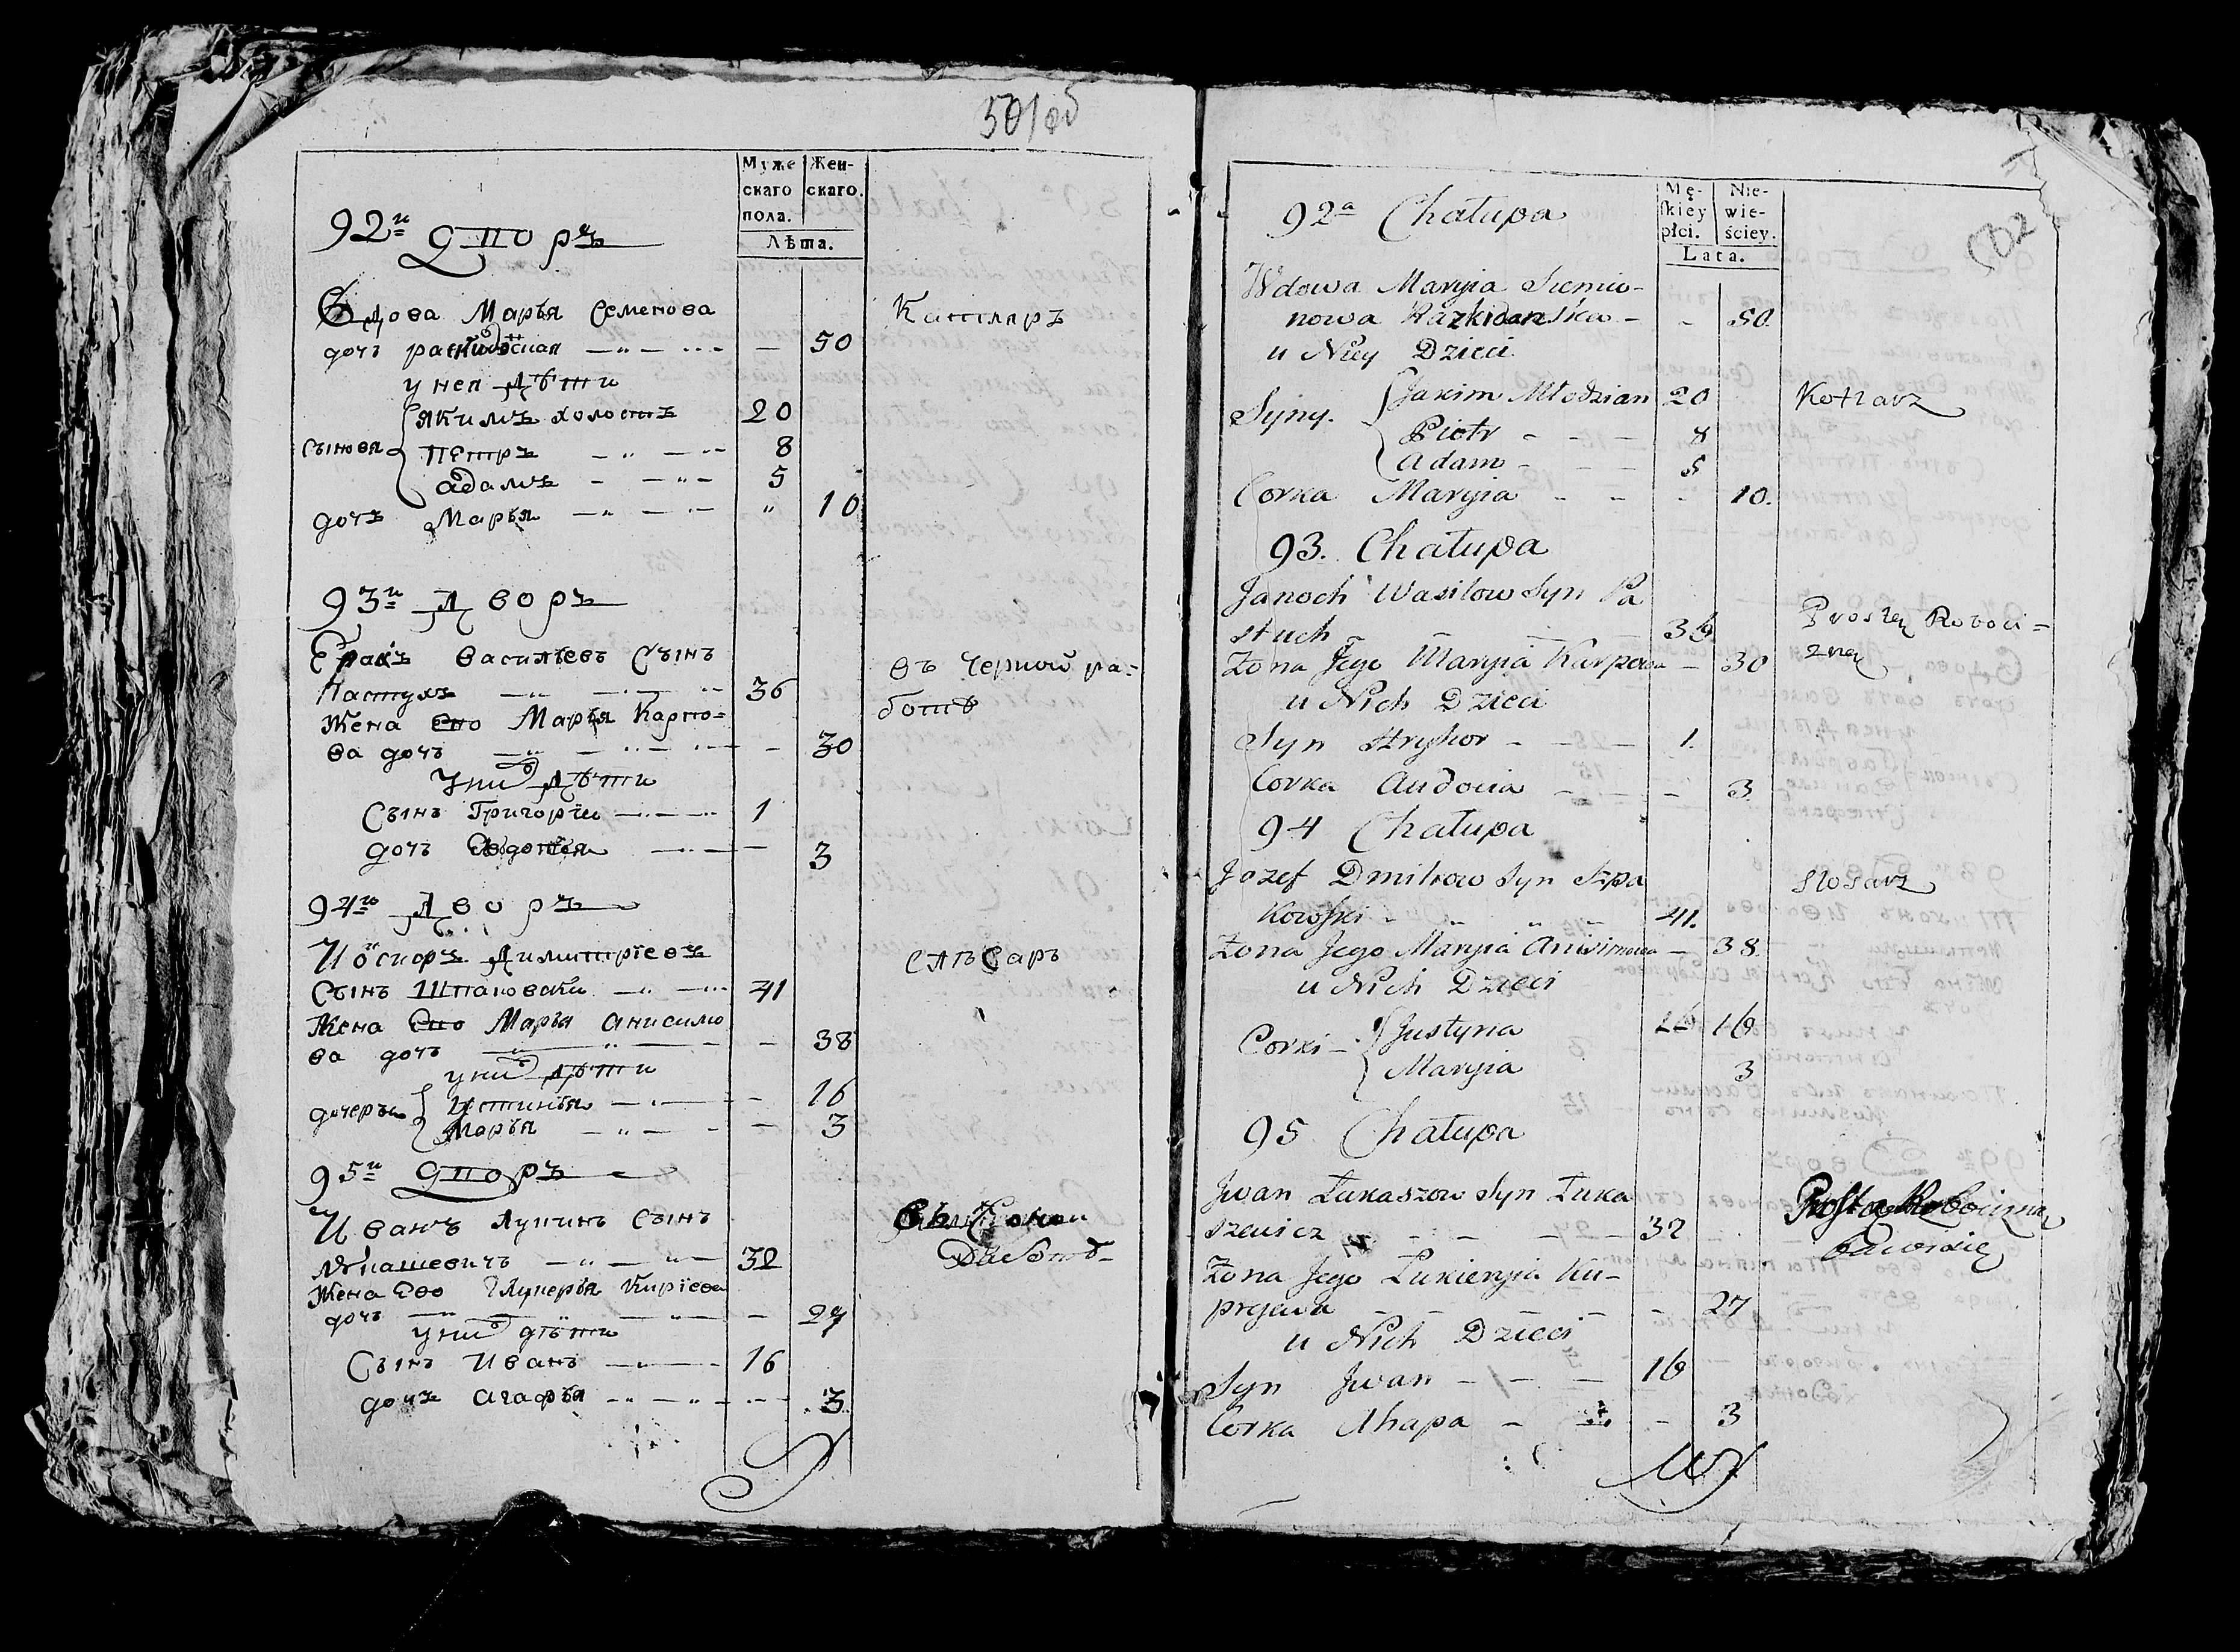 501об
Муже Жен-
скаго скаго.
пола.
Лѣта.
92й Дворъ
Вдова Марья Семенова
дочь — — 50 Катляръ
у нея дѣти
Якимъ холостъ 20
Сыновя Петръ — 8
Адамъ — 5
дочь Марья — " 10
93й Дворъ
Васильевъ Сынъ
Пастухъ — 36 въ Черной ра-
ботѣ
Жена Ево Марья Карпо-
ва дочь — 30
у них дѣти
Сынъ Григорїи — 1
дочь Авдотья — 3
94й Дворъ
Иосифъ Димитрїевъ слѣсаръ
Сынъ Шпаковски — 41
Жена Ево Марья Анисимо
ва дочь — 38
у них дѣти
дочеръи Устинья — 16
Марья — 3
95й Дворъ
Иванъ Лукинъ Сынъ
Лукашевичъ — 32
Жена Ево Лукерья Кирїева
дочь — 27
у них дѣти
Сынъ Иванъ — 16
дочь Агафья — 3
502
Mę- Nie-
skiey wie-
płci. ściey.
Lata.
92a Chałupa
Wdowa Maryia Siemio-
nowa Razkidanska - - 50
u Niey Dzieci
Syny. Jaxim Młodzian 20 Kotlarz
Piotr - - - 8
Adam - - - 5
Corka Maryia - - - 10.
93. Chałupa
Janoch Wasilow Syn Pa
stuch - - - 36 Prostey Roboci-
zney
Zona Jego Maryia Karpowa - 30
u Nich Dzieci
Syn Hryhor - - - 1.
Corka Audocia - - - 3
94 Chałupa
Jozef Dmitrow Syn Szpa slosarz
kowski - - - 41.
Zona Jego Maryia Anisimowa - 38
u Nich Dzieci
Corki - Justyna 16
Maryia 3
95 Chałupa
Jwan Łukaszow Syn Łuka
szewicz - - - 32
Zona Jego Łukieryia Ku-
pryewa - - - 27
u Nich Dzieci
Syn Jwan - - - 16
Corka Ahapa - - 3